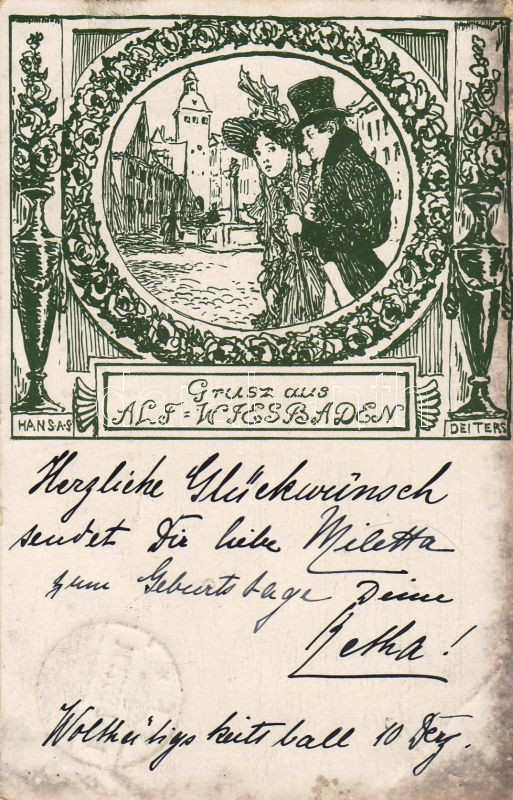 Grusz aus
ALT=WIESBADEN
HANS.A.S DEITERS
Herzliche Glückwünsch
sendet Dir liebe Miletta
zum Geburtstage Deine
Ketha!
Wolthätigskeitsball 10 Dez.